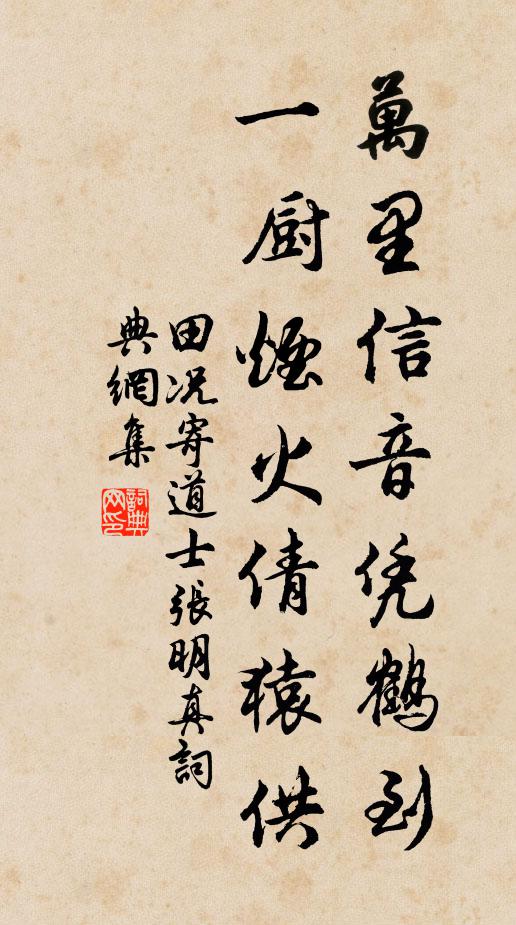 萬里信音凭鶴到
一厨煙火倩猿供
田况寄道士張明真詞
典網集
詞典網印